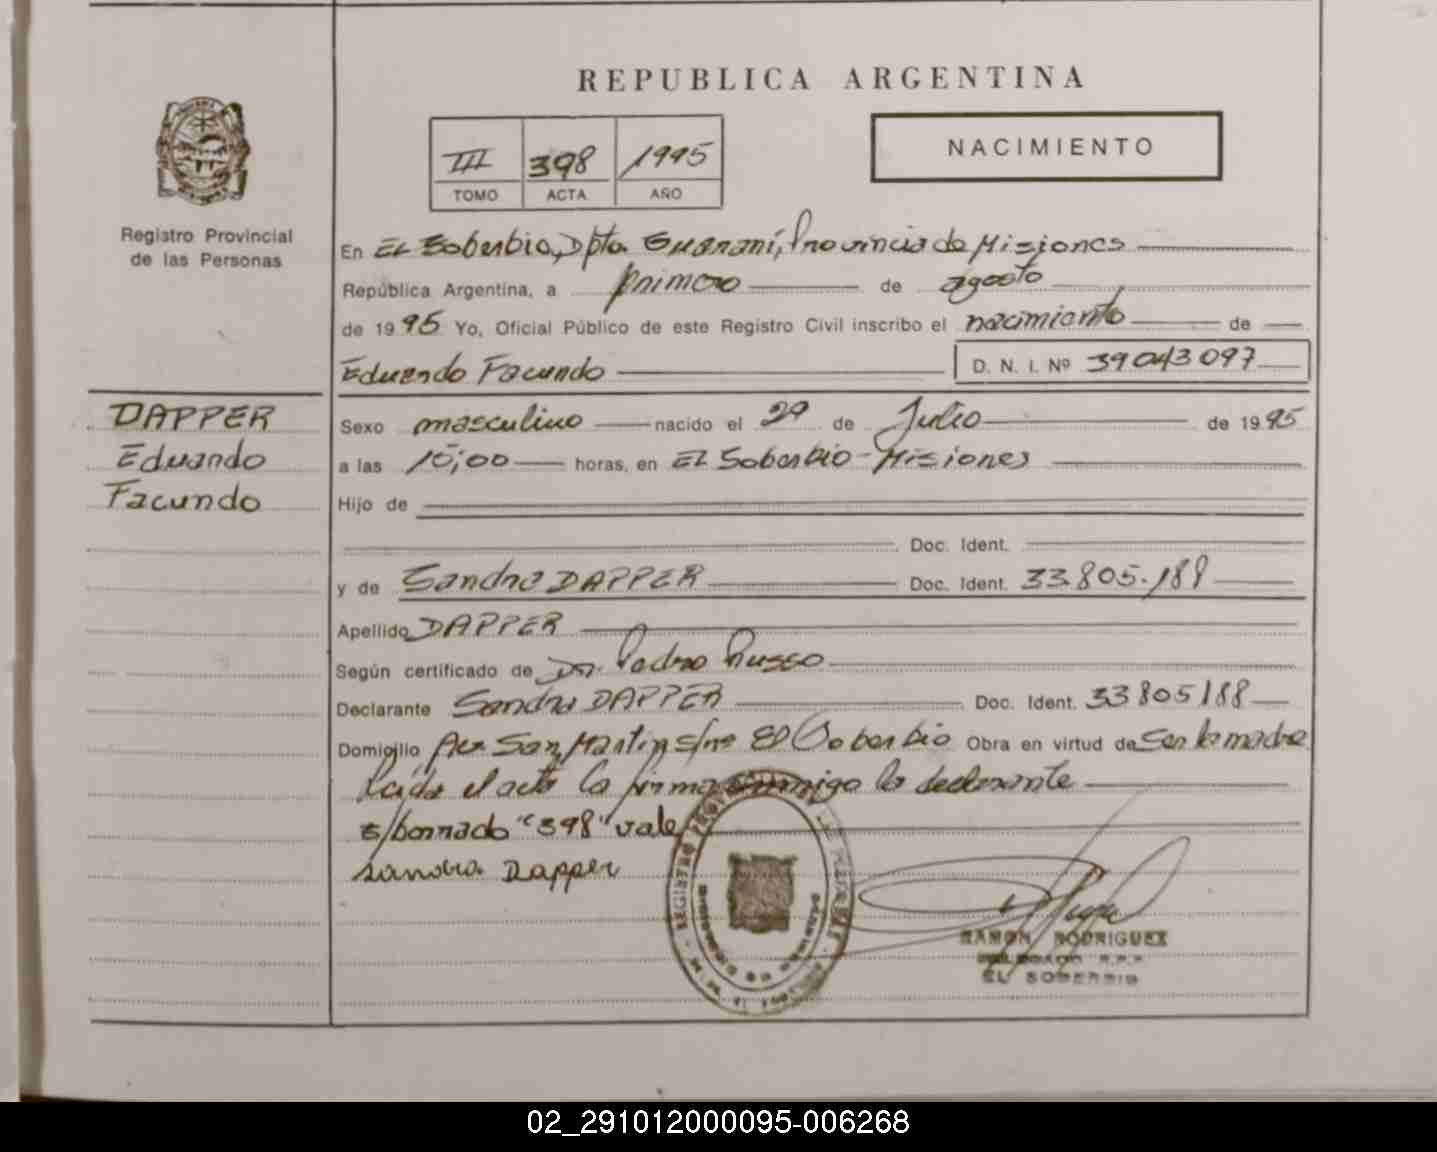 REPUBLICA ARGENTINA
NACIMIENTO
III 398 1995
TOMO ACTA AÑO
Registro Provincial
de las Personas
En EL Soberbio, Dpto Guaraní, Provincia de Misiones
República Argentina, a primero de agosto
de 1995 Yo, Oficial Público de este Registro Civil inscribo el nacimiento de
Eduardo Facundo D. N. I. Nº 39043097
DAPPER
Eduardo
Facundo
Sexo masculino nacido el 29 de Julio de 1995
a las 15,00 horas, en EL Soberbio - Misiones
Hijo de
Doc. Ident.
y de Sandra DAPPER Doc. Ident. 33.805.188
Apellido DAPPER
Según certificado de Dr. Pedro Russo
Declarante Sandra DAPPER Doc. Ident. 33805188
Domicilio Av. San Martin s/nº El Soberbio Obra en virtud de Ser la madre
Leída el acta la firma conmigo la declarante
E/borrado "398" vale
sandra Dapper
RAMON RODRIGUEZ
DELEGADO R.P.P.
EL SOBERBIO
02_291012000095-006268